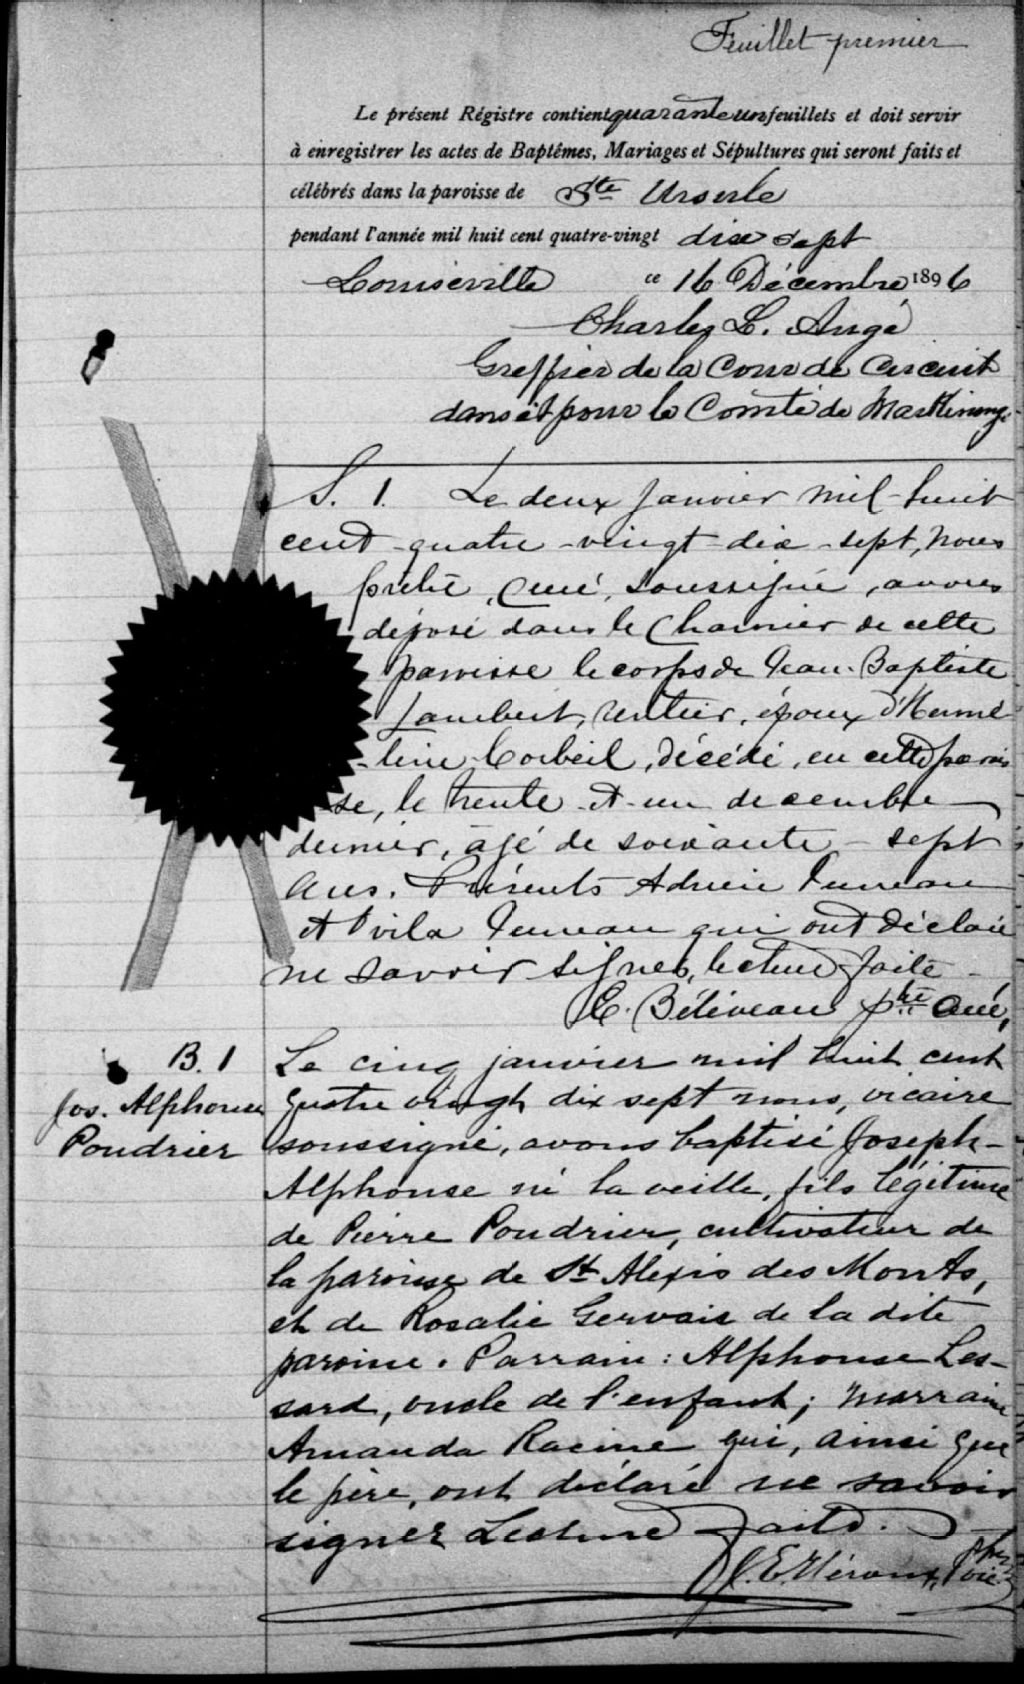 Feuillet premier
Le présent Régistre contient quarante un feuillets et doit servir
à enregistrer les actes de Baptêmes, Mariages et Sépultures qui seront faits et
célébrés dans la paroisse de Ste Ursule
pendant l'année mil huit cent quatre-vingt dix sept
Louiseville ce 16 Décembre 1896
Charles L. Augé
Greffier de la Cour de Circuit
dans et pour le Comté de Maskinongé
S. 1. Le deux janvier mil-huit
cent-quatre-vingt-dix-sept, nous
prêtre, curé, soussigné, avons
déposé dans le charnier de cette
paroisse le corps de Jean-Baptiste
Lambert, rentier, époux d'Hermé
-line Corbeil, décédé, en cette parois
se, le trente-et-un decembre
dernier, âgé de soixante-sept
ans. Présents Adrien Juneau
et Juneau qui ont déclaré
ne savoir signer, lecture faite
Béliveau ptre Curé,
B. 1
Jos. Alphonse
Poudrier
Le cinq janvier mil huit cent
quatre vingt dix sept nous, vicaire
soussigné, avons baptisé Joseph-
Alphonse né la veille, fils légitime
de Pierre Poudrier, cultivateur de
la paroisse de St Alexis des Monts,
et de Rosalie Gervais de la dite
paroisse. Parrain: Alphonse Les-
sard, oncle de l'enfant; marraine
Amanda Racine qui, ainsi que
le père, ont déclaré ne savoir
signer Lecture faite.
J.E. Héroux, ptre vic.